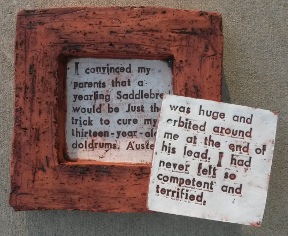 I convinced my
parents that a
yearling Saddlebre
would be just the
trick to cure my
thirteen-year-ol
doldrums. Auste
was huge and
orbited around
me at the end of
his lead. I had
never felt so
competent and
terrified.